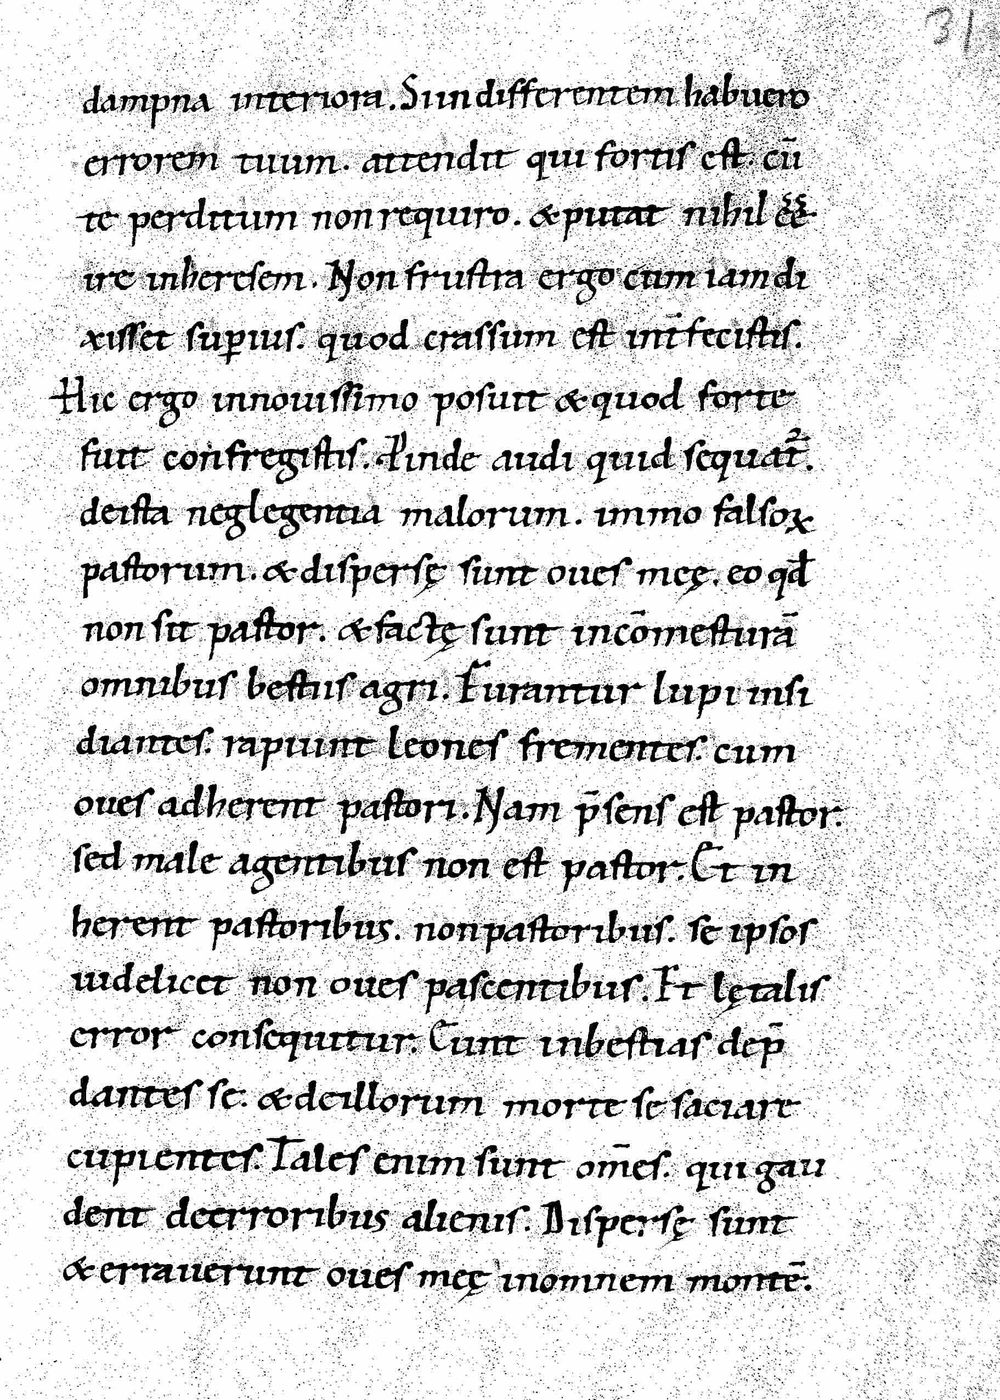 31
dampna interiora. Sin differentem habuero
errorem tuum. attendit qui fortis est. cū
te perditum non requiro. & putat nihil eē
ire in heresem. Non frustra ergo cum iam di
xisset sup̄ius. quod crassum est int̄fecistis.
Hic ergo in nouissimo posuit & quod forte
fuit confregistis. Proinde audi quid sequat̄.
de ista neglegentia malorum. immo falsoꝝ
pastorum. & dispersę sunt oues meę. eo qđ
non sit pastor. & factę sunt in cōmesturā
omnibus bestiis agri. Furantur lupi insi
diantes. rapiunt leones frementes. cum
oues adherent pastori. Nam p̄sens est pastor.
sed male agentibus non est pastor. Et in
herent pastoribus. non pastoribus. se ipsos
uidelicet non oues pascentibus. Et lętalis
error consequitur. Eunt in bestias dep̄
dantes se. & de illorum morte se saciare
cupientes. Tales enim sunt om̄es. qui gau
dent de erroribus alienis. Dispersę sunt
& errauerunt oues meę in omnem montē.